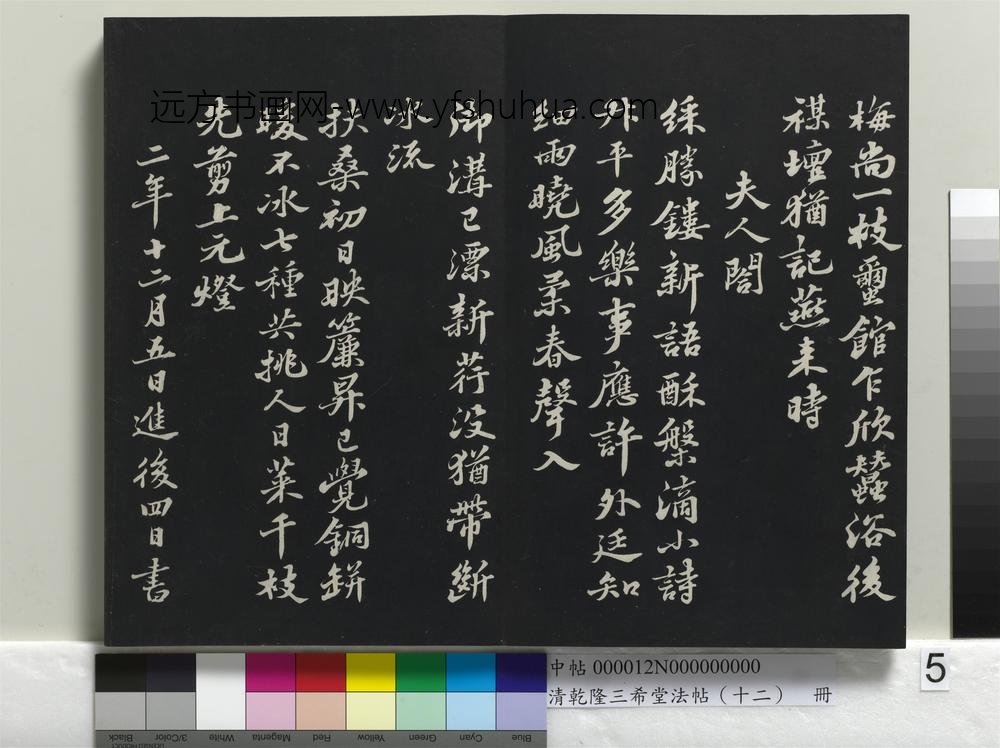 梅尚一枝蚕館乍欣蠶浴後
禖壇猶記燕来時
夫人閤
綵勝鏤新語酥槃滴小詩
升平多樂事應許外廷知
細雨曉風柔春聲入
御溝已漂新荇没猶帶斷
冰流
扶桑初日映簾昇已覺銅缾
暖不冰七種共挑人日菜千枝
先剪上元燈
二年十二月五日進後四日書
远方书画网-www.yfshuhua.com
中帖 000012N000000000
清乾隆三希堂法帖（十二） 冊
5
Black
3/Color
White
Magenta
Red
Yellow
Green
Cyan
Blue